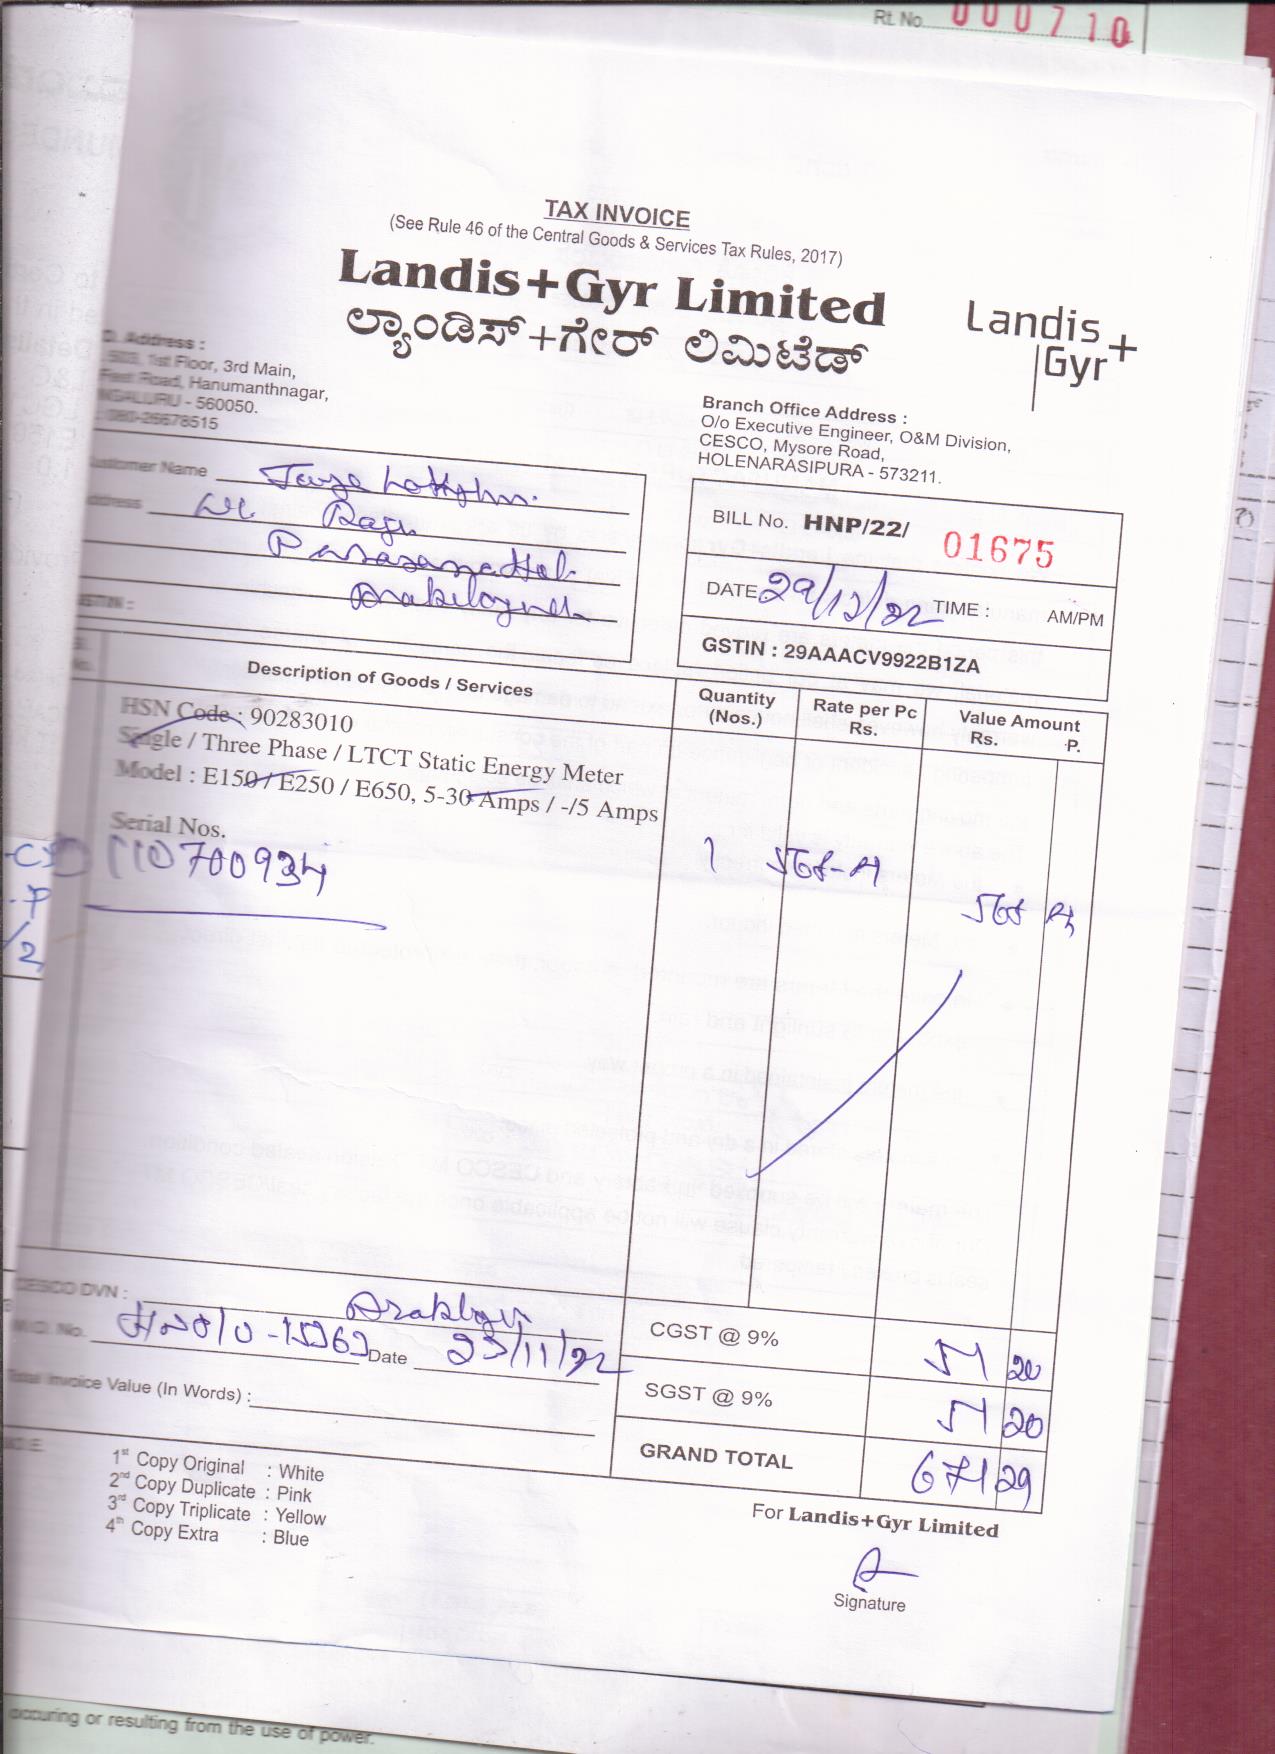 Rt. No. 000710
TAX INVOICE
(See Rule 46 of the Central Goods & Services Tax Rules, 2017)
Landis+Gyr Limited
ಲ್ಯಾಂಡಿಸ್+ಗೇರ್ ಲಿಮಿಟೆಡ್
Landis+
Gyr
Address :
1st Floor, 3rd Main,
Road, Hanumanthnagar,
- 560050.
080-26678515
Branch Office Address :
O/o Executive Engineer, O&M Division,
CESCO, Mysore Road,
HOLENARASIPURA - 573211.
Customer Name
Address
Raju
GSTIN :
BILL No. HNP/22/ 01675
DATE 29/12/22 TIME : AM/PM
GSTIN : 29AAACV9922B1ZA
Description of Goods / Services
Quantity (Nos.)
Rate per Pc Rs.
Value Amount Rs. P.
HSN Code : 90283010
Single / Three Phase / LTCT Static Energy Meter
Model : E150 / E250 / E650, 5-30 Amps / -/5 Amps
Serial Nos.
110700934
1
CESCO DVN :
Date 23/11/22
Total Invoice Value (In Words) :
CGST @ 9% 51 20
SGST @ 9% 51 20
GRAND TOTAL 671 29
1st Copy Original : White
2nd Copy Duplicate : Pink
3rd Copy Triplicate : Yellow
4th Copy Extra : Blue
For Landis+Gyr Limited
Signature
occuring or resulting from the use of power.